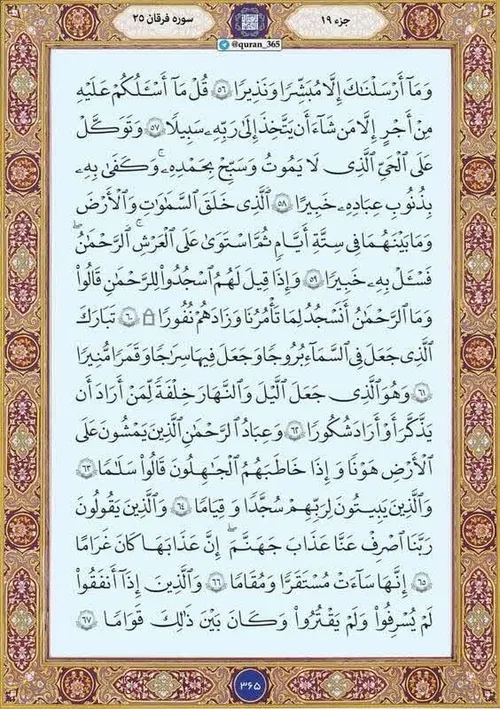 جزء ۱۹
سوره فرقان ۲۵
@quran_365
وَمَآ أَرۡسَلۡنَٰكَ إِلَّا مُبَشِّرٗا وَنَذِيرٗا ۝٥٦ قُلۡ مَآ أَسۡـَٔلُكُمۡ عَلَيۡهِ
مِنۡ أَجۡرٍ إِلَّا مَن شَآءَ أَن يَتَّخِذَ إِلَىٰ رَبِّهِۦ سَبِيلٗا ۝٥٧ وَتَوَكَّلۡ
عَلَى ٱلۡحَيِّ ٱلَّذِي لَا يَمُوتُ وَسَبِّحۡ بِحَمۡدِهِۦۚ وَكَفَىٰ بِهِۦ
بِذُنُوبِ عِبَادِهِۦ خَبِيرًا ۝٥٨ ٱلَّذِي خَلَقَ ٱلسَّمَٰوَٰتِ وَٱلۡأَرۡضَ
وَمَا بَيۡنَهُمَا فِي سِتَّةِ أَيَّامٖ ثُمَّ ٱسۡتَوَىٰ عَلَى ٱلۡعَرۡشِۚ ٱلرَّحۡمَٰنُ
فَسۡـَٔلۡ بِهِۦ خَبِيرٗا ۝٥٩ وَإِذَا قِيلَ لَهُمُ ٱسۡجُدُواْ لِلرَّحۡمَٰنِ قَالُواْ
وَمَا ٱلرَّحۡمَٰنُ أَنَسۡجُدُ لِمَا تَأۡمُرُنَا وَزَادَهُمۡ نُفُورٗا ۩ ۝٦٠ تَبَارَكَ
ٱلَّذِي جَعَلَ فِي ٱلسَّمَآءِ بُرُوجٗا وَجَعَلَ فِيهَا سِرَٰجٗا وَقَمَرٗا مُّنِيرٗا
۝٦١ وَهُوَ ٱلَّذِي جَعَلَ ٱلَّيۡلَ وَٱلنَّهَارَ خِلۡفَةٗ لِّمَنۡ أَرَادَ أَن
يَذَّكَّرَ أَوۡ أَرَادَ شُكُورٗا ۝٦٢ وَعِبَادُ ٱلرَّحۡمَٰنِ ٱلَّذِينَ يَمۡشُونَ عَلَى
ٱلۡأَرۡضِ هَوۡنٗا وَإِذَا خَاطَبَهُمُ ٱلۡجَٰهِلُونَ قَالُواْ سَلَٰمٗا ۝٦٣
وَٱلَّذِينَ يَبِيتُونَ لِرَبِّهِمۡ سُجَّدٗا وَقِيَٰمٗا ۝٦٤ وَٱلَّذِينَ يَقُولُونَ
رَبَّنَا ٱصۡرِفۡ عَنَّا عَذَابَ جَهَنَّمَۖ إِنَّ عَذَابَهَا كَانَ غَرَامًا
۝٦٥ إِنَّهَا سَآءَتۡ مُسۡتَقَرّٗا وَمُقَامٗا ۝٦٦ وَٱلَّذِينَ إِذَآ أَنفَقُواْ
لَمۡ يُسۡرِفُواْ وَلَمۡ يَقۡتُرُواْ وَكَانَ بَيۡنَ ذَٰلِكَ قَوَامٗا ۝٦٧
۳۶۵